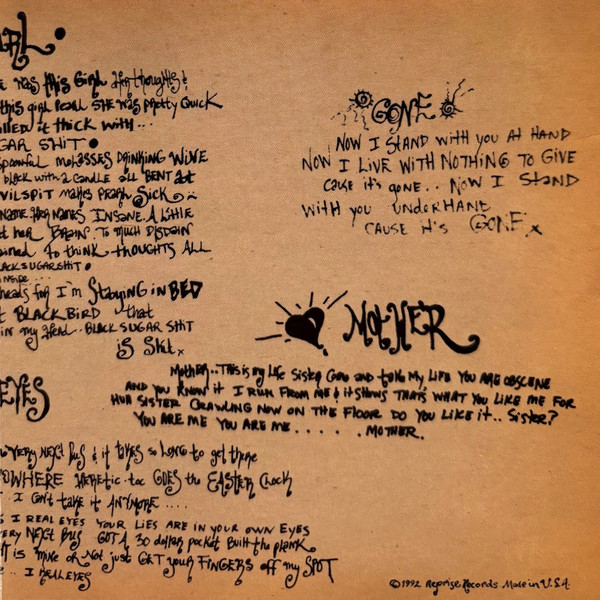 RL
WAS this GIRL Her thoughts &
this girl Pearl SHE WAS PRETTY QUICK
it thick with...
GAR SHIT
MOLASSES DRINKING WINE
black with a candle all BENT at
VILSPIT makes PEARL Sick
NAME HER NAMES INSANE. A little
her BRAIN. To MUCH DISDAIN
to think thoughts ALL
BLACKSUGARSHIT
INSIDE....
heads for I'm Staying in BED
BLACKBIRD that
in my Head.. BLACK SUGAR SHIT
is Shit x
GONE
NOW I STAND with you AT HAND
NOW I LIVE WITH NOTHING TO GIVE
CAUSE it's gone.. NOW I StaND
with you UNDERHAND
CAUSE it's GONE x
MOTHER
Mother.. This is my Life Sister Come and take My Life YOU ARE OBSCENE
AND you KNOW it I RUN FROM ME & it SHOWS THATS WHAT YOU LIKE ME FOR
HUH SISTER CRAWLING NOW ON THE FLOOR DO YOU LIKE it.. Sister?
YOU ARE ME YOU ARE ME..... .MOTHER.
EYES
VERY NEXT BUS & it takes so LONG to get there
NOWHERE HERETIC-toc GOES the EASTER Clock
I Can't take it ANYMORE....
I REAL EYES YOUR LIES ARE IN YOUR OWN EYES
VERY NEXT BUS GOT A 30 dollar pocket Built the plank
it is MINE OR Not just GET your FINGERS off my SPOT
.. I REALEYES
©1992 Reprise Records. Made in U.S.A.